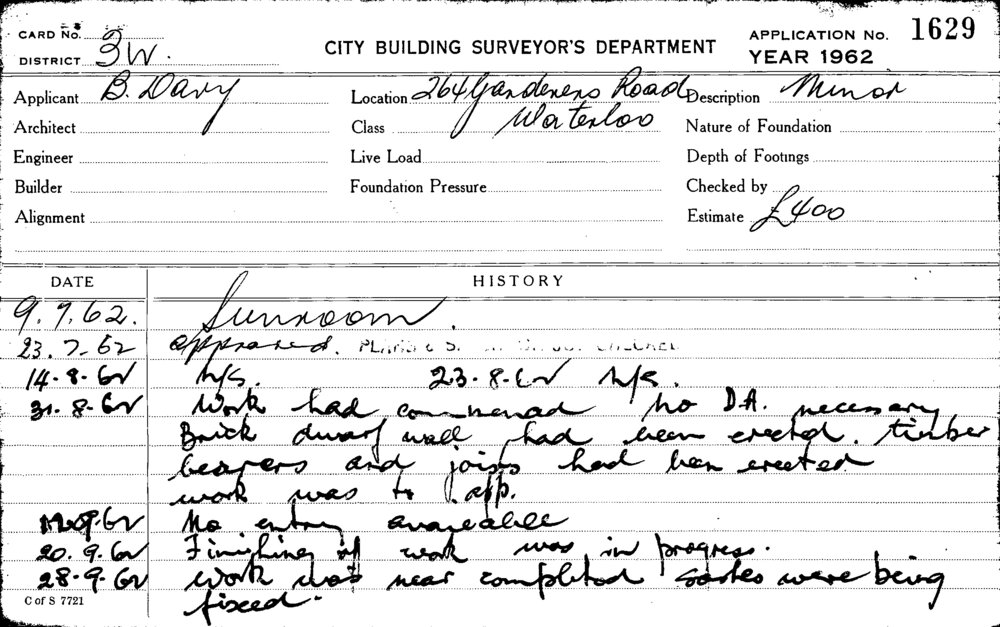 CARD No.
DISTRICT 3W.
CITY BUILDING SURVEYOR'S DEPARTMENT
APPLICATION No. 1629
YEAR 1962
Applicant B. Davy
Location 264 Gardeners Road
Description Minor
Architect
Class Waterloo
Nature of Foundation
Engineer
Live Load
Depth of Footings
Builder
Foundation Pressure
Checked by
Alignment
Estimate £400
DATE HISTORY
9.7.62. Sunroom.
23.7.62 approved. PLANS & S.
14.8.62 N/S. 23.8.62 N/S.
31.8.62 Work had commenced No D.A. necessary
Brick dwarf wall had been erected. timber
bearers and joists had been erected
work was to app.
.9.62 No entry available
20.9.62 Finishing of work was in progress.
28.9.62 work was near completed sashes were being
fixed.
C of S 7721